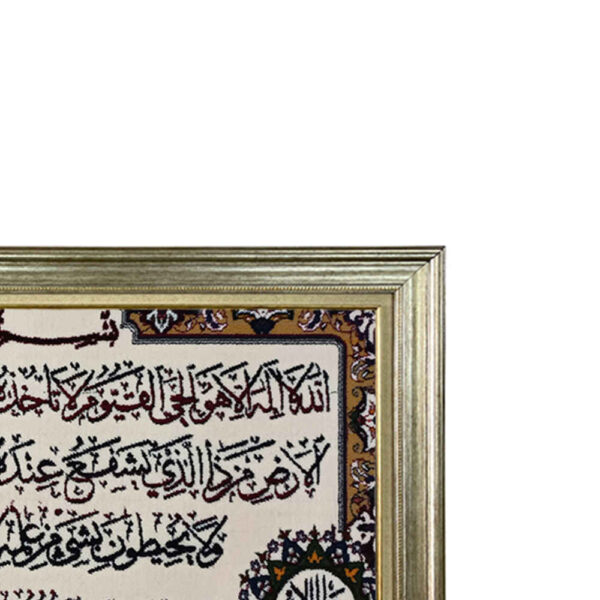 الله لا إله إلا هو الحي القيوم لا تأخذه
الأرض من ذا الذي يشفع عنده
ولا يحيطون بشيء من علمه